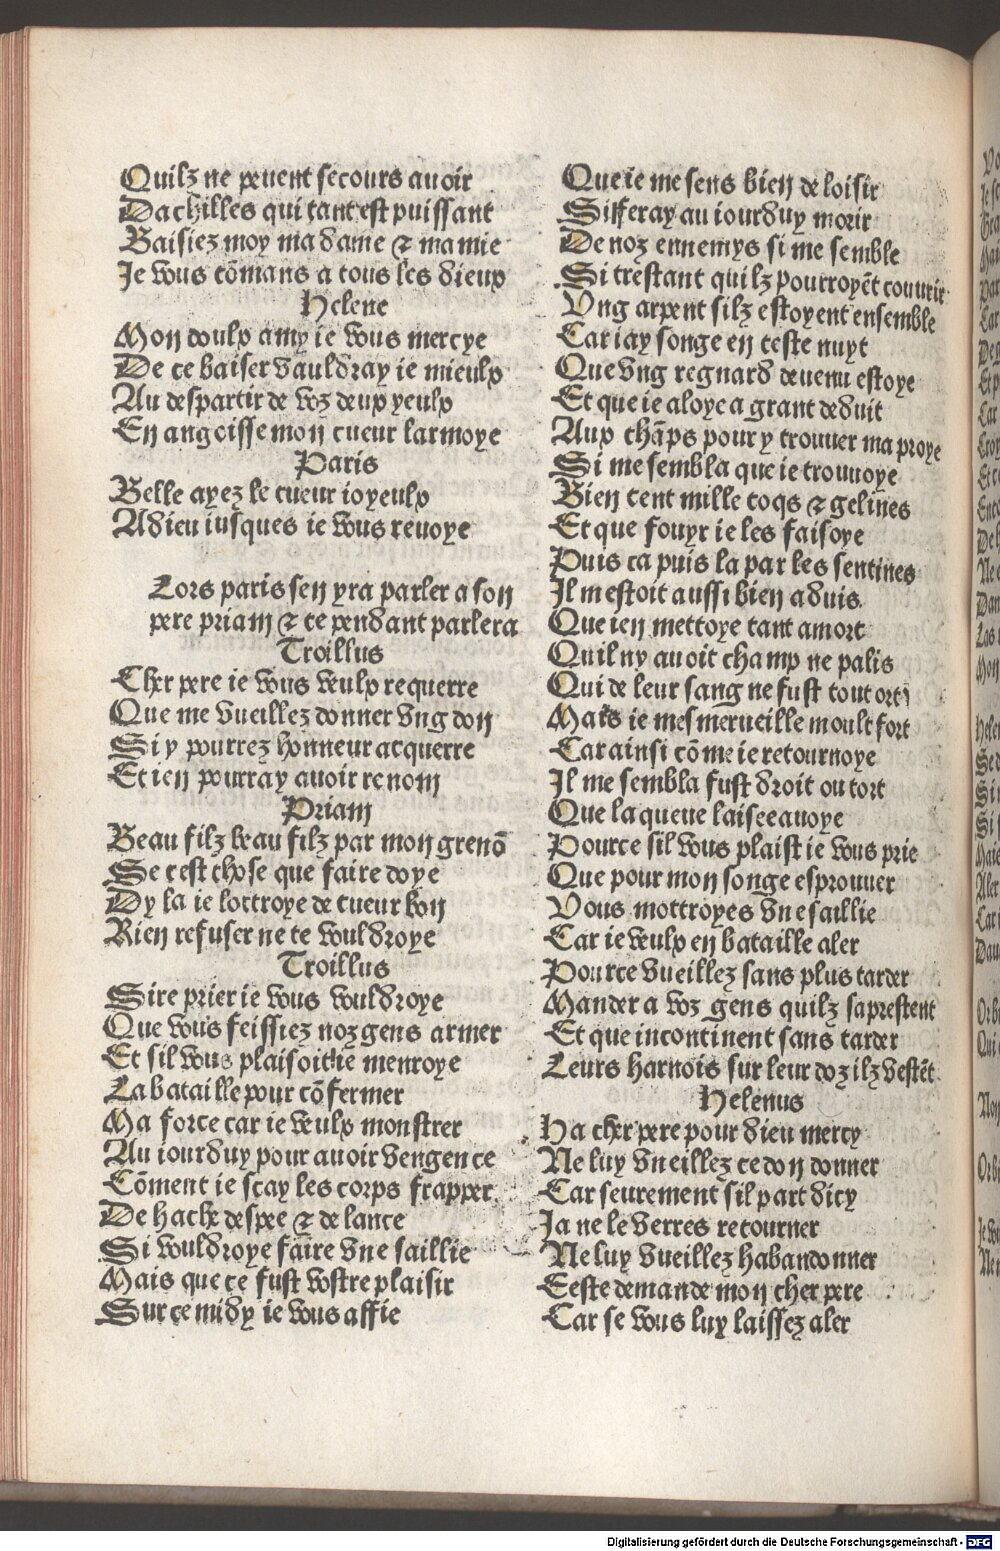 Quilz ne peuent secours auoir
Dachilles qui tant est puissant
Baisiez moy ma dame ⁊ mamie
Je vous cōmans a tous les dieux
Helene
Mon doulx amy ie vous mercye
De ce baiser vauldray ie mieulx
Au despartir de voz deux yeulx
En angoisse mon cueur larmoye
Paris
Belle ayez le cueur ioyeulx
Adieu iusques ie vous reuoye
Lors paris sen yra parler a son
pere priam ⁊ ce pendant parlera
Troillus
Cher pere ie vous veulx requerre
Que me vueillez donner vng don
Si y pourrez honneur acquerre
Et ien pourray auoir renom
Priam
Beau filz beau filz par mon grenō
Se cest chose que faire doye
Dy la ie loctroye de cueur bon
Rien refuser ne te vouldroye
Troillus
Sire prier ie vous vouldroye
Que vous feissiez noz gens armer
Et sil vous plaisoit ie menroye
La bataille pour cōfermer
Ma force car ie veulx monstrer
Au iourduy pour auoir vengence
Cōment ie scay les corps frapper
De hache despee ⁊ de lance
Si vouldroye faire vne saillie
Mais que ce fust vostre plaisir
Sur ce midy ie vous affie
Que ie me sens bien de loisir
Si fferay au iourduy morir
De noz ennemys si me semble
Si trestant quilz pourroyēt couurir
Vng arpent silz estoyent ensemble
Car iay songe en ceste nuyt
Que vng regnard deuenu estoye
Et que ie aloye a grant deduit
Aux chāps pour y trouuer ma proye
Si me sembla que ie trouuoye
Bien cent mille coqs ⁊ gelines
Et que fouyr ie les faisoye
Puis ca puis la par les sentines
Il mestoit aussi bien aduis
Que ien mettoye tant amort
Quil ny auoit champ ne palis
Qui de leur sang ne fust tout ort
Mais ie mesmerueille moult fort
Car ainsi cōme ie retournoye
Il me sembla fust droit ou tort
Que la queue laisee auoye
Pource sil vous plaist ie vous prie
Que pour mon songe esprouuer
Vous mottroyes vne saillie
Car ie veulx en bataille aler
Pource vueillez sans plus tarder
Mander a voz gens quilz saprestent
Et que incontinent sans tarder
Leurs harnois sur leur doz ilz vestēt
Helenus
Ha cher pere pour dieu mercy
Ne luy vueillez ce don donner
Car seurement sil part dicy
Ja ne le verres retourner
Ne luy vueillez habandonner
Ceste demande mon cher pere
Car se vous luy laissez aler
Digitalisierung gefördert durch die Deutsche Forschungsgemeinschaft - DFG